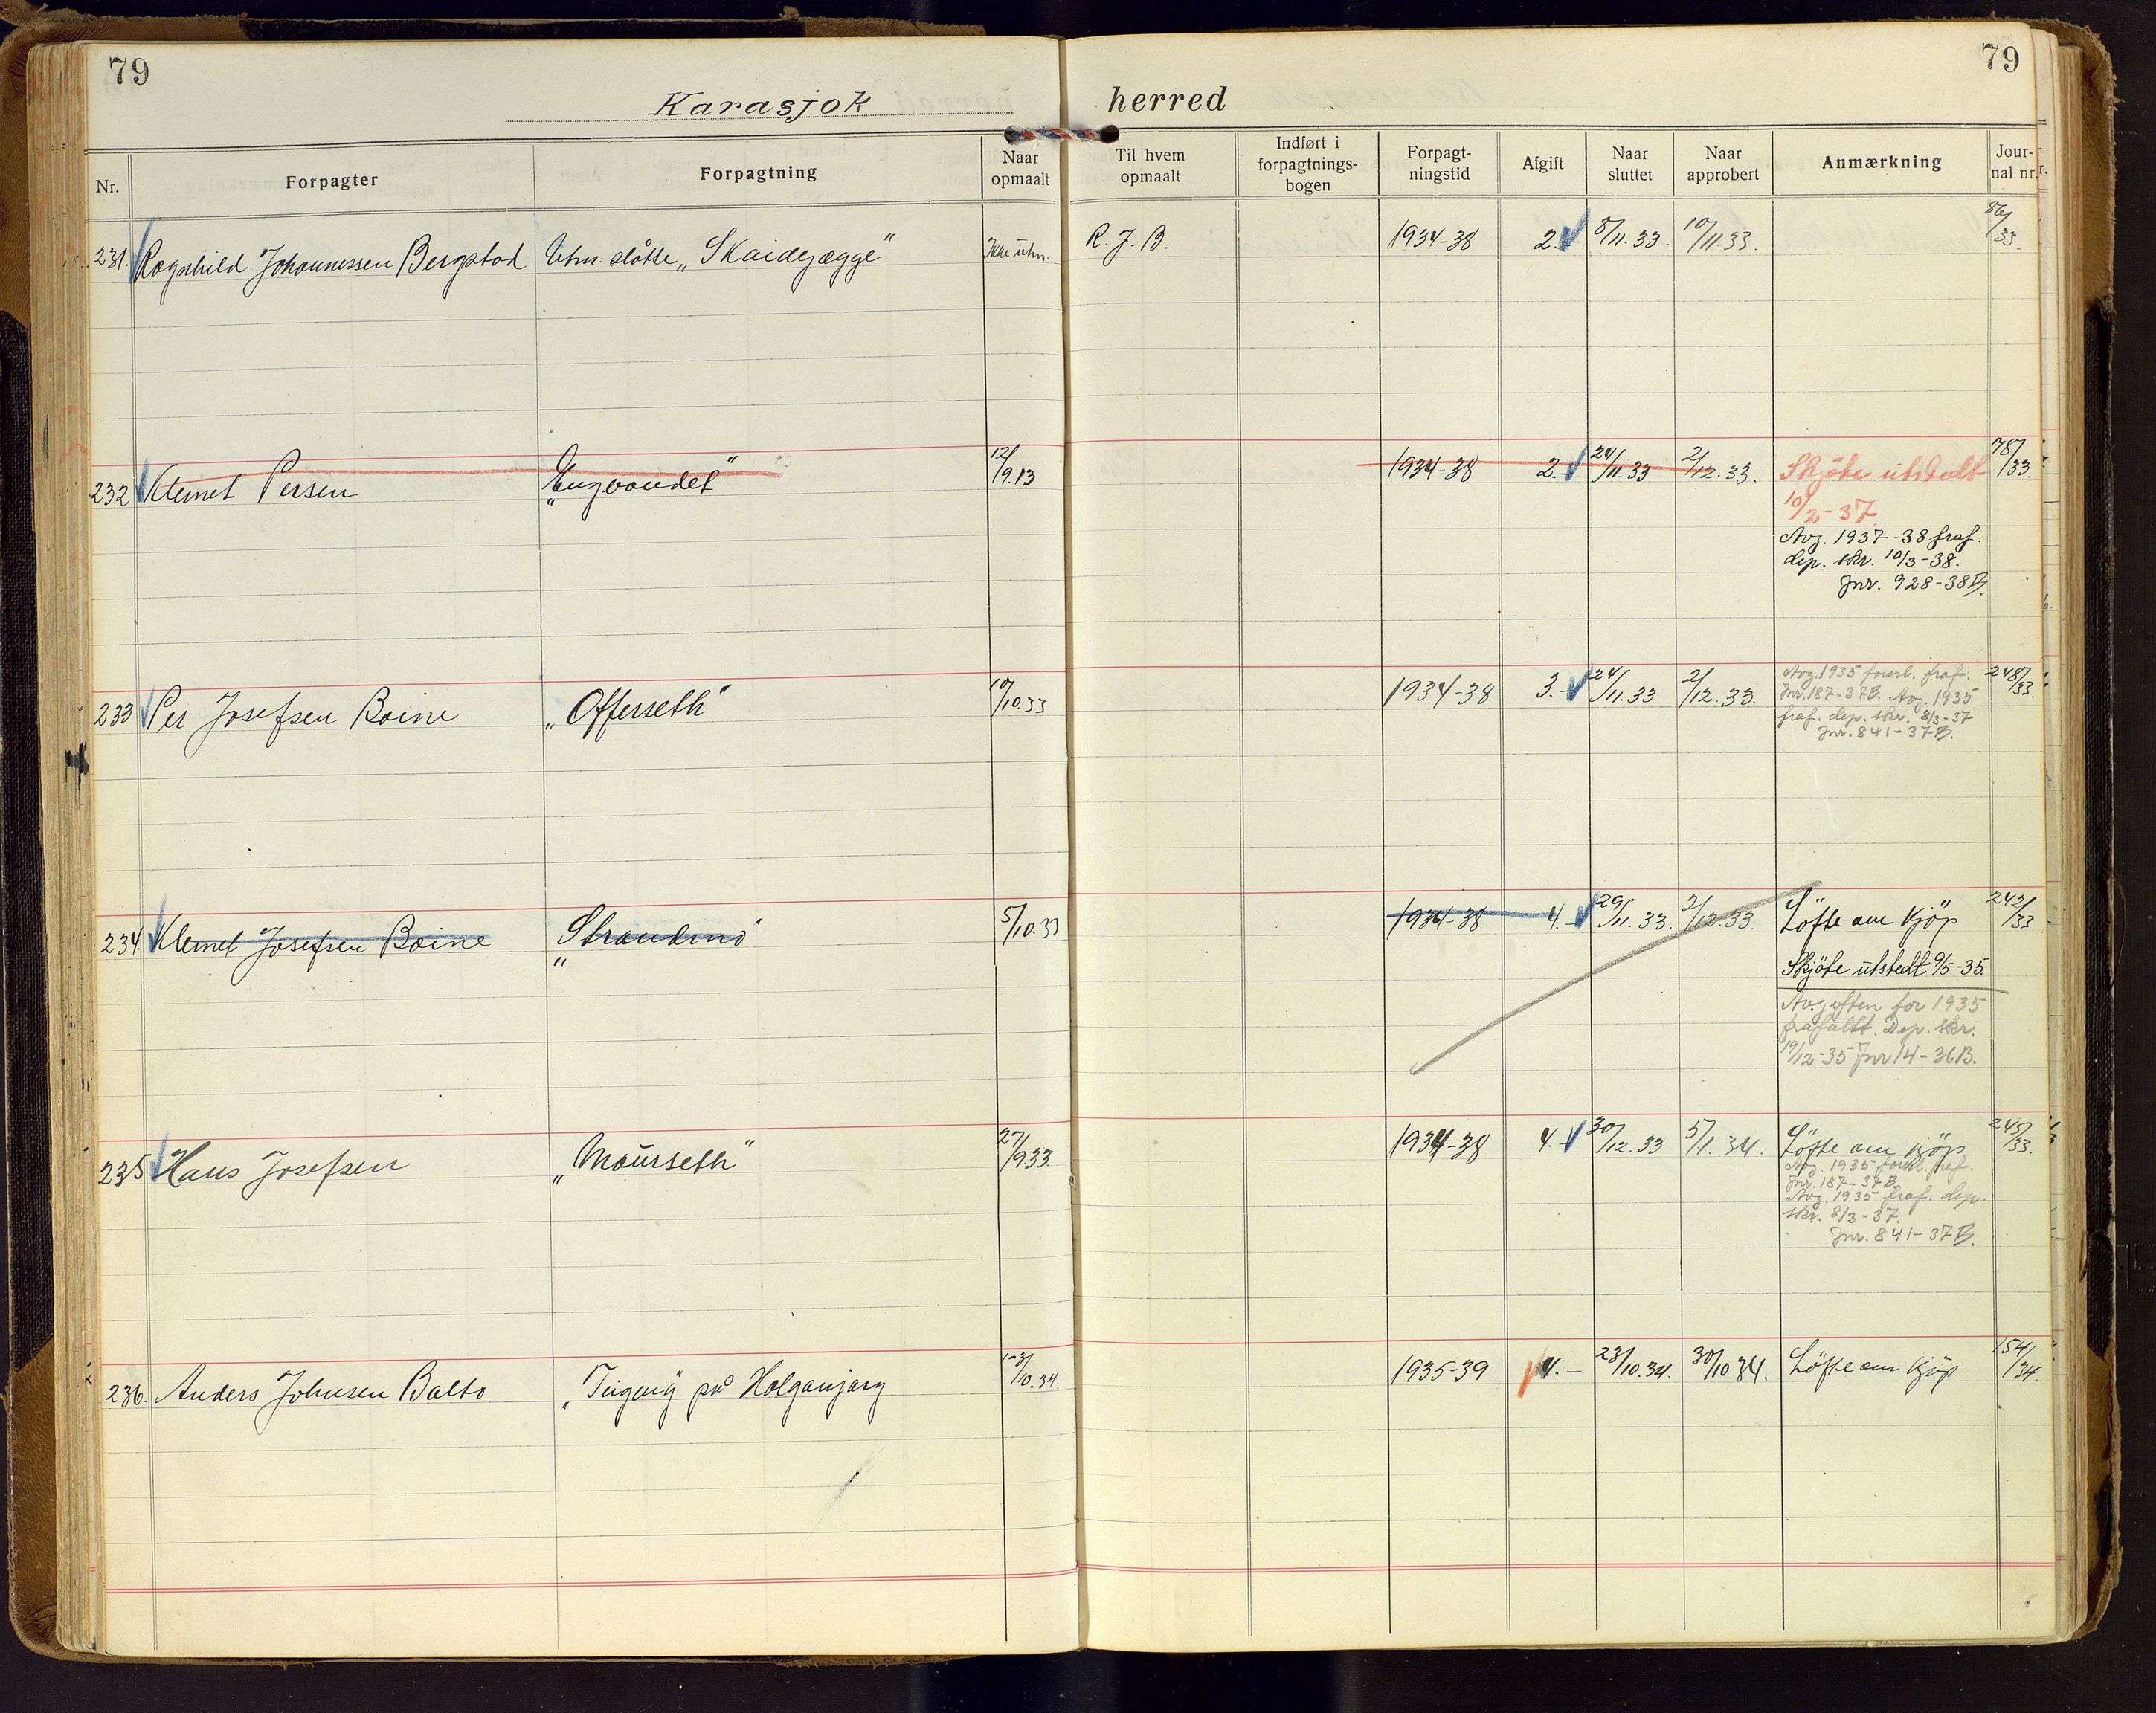 79
79
Karasjok herred
Nr. Forpagter Forpagtning Naar opmaalt Til hvem opmaalt Indført i forpagtnings-bogen Forpagt-ningstid Afgift Naar sluttet Naar approbert Anmærkning Jour-nal nr.
231. Ragnhild Johannessen Bergstad Utm. slåtte „Skaidejægge" Ikke utm. R. J. B. 1934-38 2.- 8/11.33. 10/11.33. 86/33.
232 Klemet Persen „Engvandet" 12/9.13 1934-38 2.- 24/11.33 2/12.33. Skjöte utstedt 78/33.
10/2-37
Avg. 1937-38 fraf.
dep. skr. 10/3-38.
Jnr. 928-38B.
233 Per Josefsen Boine „Offerseth" 10/10.33 1934-38 3.- 24/11.33 2/12.33. Avg. 1935 foresl. fraf. 248/33.
Jnr. 187-37B. Avg. 1935
fraf. dep. skr. 8/3-37
Jnr. 841-37B.
234 Klemet Josefsen Boine „Strandmo" 5/10.33 1934-38 4.- 29/11.33. 2/12.33. Löfte om kjöp 243/33
Skjöte utstedt 9/5-35.
Avgiften for 1935
frafalt. Dep. skr.
19/12-35 Jnr 14-36B.
235 Hans Josefsen „Maurseth" 27/9.33. 1934-38 4.- 30/12.33 5/1.34. Löfte om kjöp 245/33.
Avg. 1935 foresl. fraf.
Jnr. 187-37B.
Avg. 1935 fraf. dep.
skr. 8/3-37.
Jnr. 841-37B.
236. Anders Johnsen Balto „ på Holganjarg 10.34. 1935-39 4.- 23/10.34. 30/10 34. Löfte om kjöp 154/34.